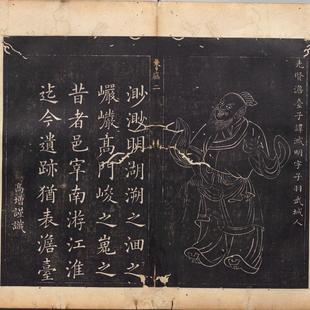 先賢澹臺子諱滅明字子羽武城人
渺渺明湖溯之洄之
巖巖髙門峻之嵬之
昔者邑宰南游江淮
迄今遺跡猶表澹臺
髙增謹識